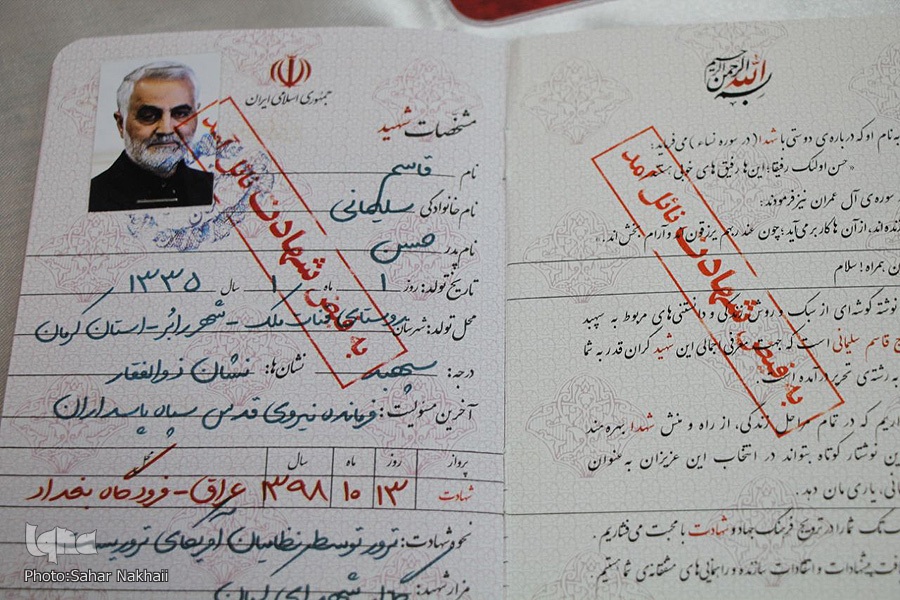 جمهوری اسلامی ایران
مشخصات شهید
نام قاسم
نام خانوادگی سلیمانی
نام پدر حسن
تاریخ تولد: روز ۱ ماه ۱ سال ۱۳۳۵
محل تولد: شهرستان روستای قنات ملک - شهر رابُر - استان کرمان
درجه: سپهبد نشان‌ها: نشان ذوالفقار
آخرین مسؤلیت: فرمانده نیروی قدس سپاه پاسداران
پرواز روز ماه سال محل
شهادت ۱۳ ۱۰ ۱۳۹۸ عراق - فرودگاه بغداد
نحوه شهادت: ترور توسط نظامیان آمریکای
مزار شهید: گلزار شهدای کرمان
به فیض شهادت نائل آمد
بسم الله الرحمن الرحیم
به نام او که درباره‌ی دوستی با شهدا (در سوره نساء) می‌فرماید:
«حسن اولئک رفیقا؛ این‌ها رفیق‌های خوبی هستند
سوره‌ی آل عمران نیز فرمودند:
زنده‌اند، از آن ها کار بر می‌آید؛ چون عند ربهم یرزقون و آرام بخش‌اند.»
همراه! سلام
نوشته گوشه‌ای از سبک و روش زندگی و دانستنی‌های مربوط به سپهبد
قاسم سلیمانی است که جهت معرفی اجمالی این شهید گران قدر به شما
به رشته‌ی تحریر درآمده است.
که در تمام مراحل زندگی، از راه و منش شهدا بهره مند
نوشتار کوتاه بتواند در انتخاب این عزیزان به عنوان
یاری مان دهد.
تک شما را در ترویج فرهنگ جهاد و شهادت با محبت می‌فشاریم.
پیشنهادات و انتقادات سازنده و راهنمایی‌های مشفقانه‌ی شما هستیم
به فیض شهادت نائل آمد
iqna
Photo:Sahar Nakhaii